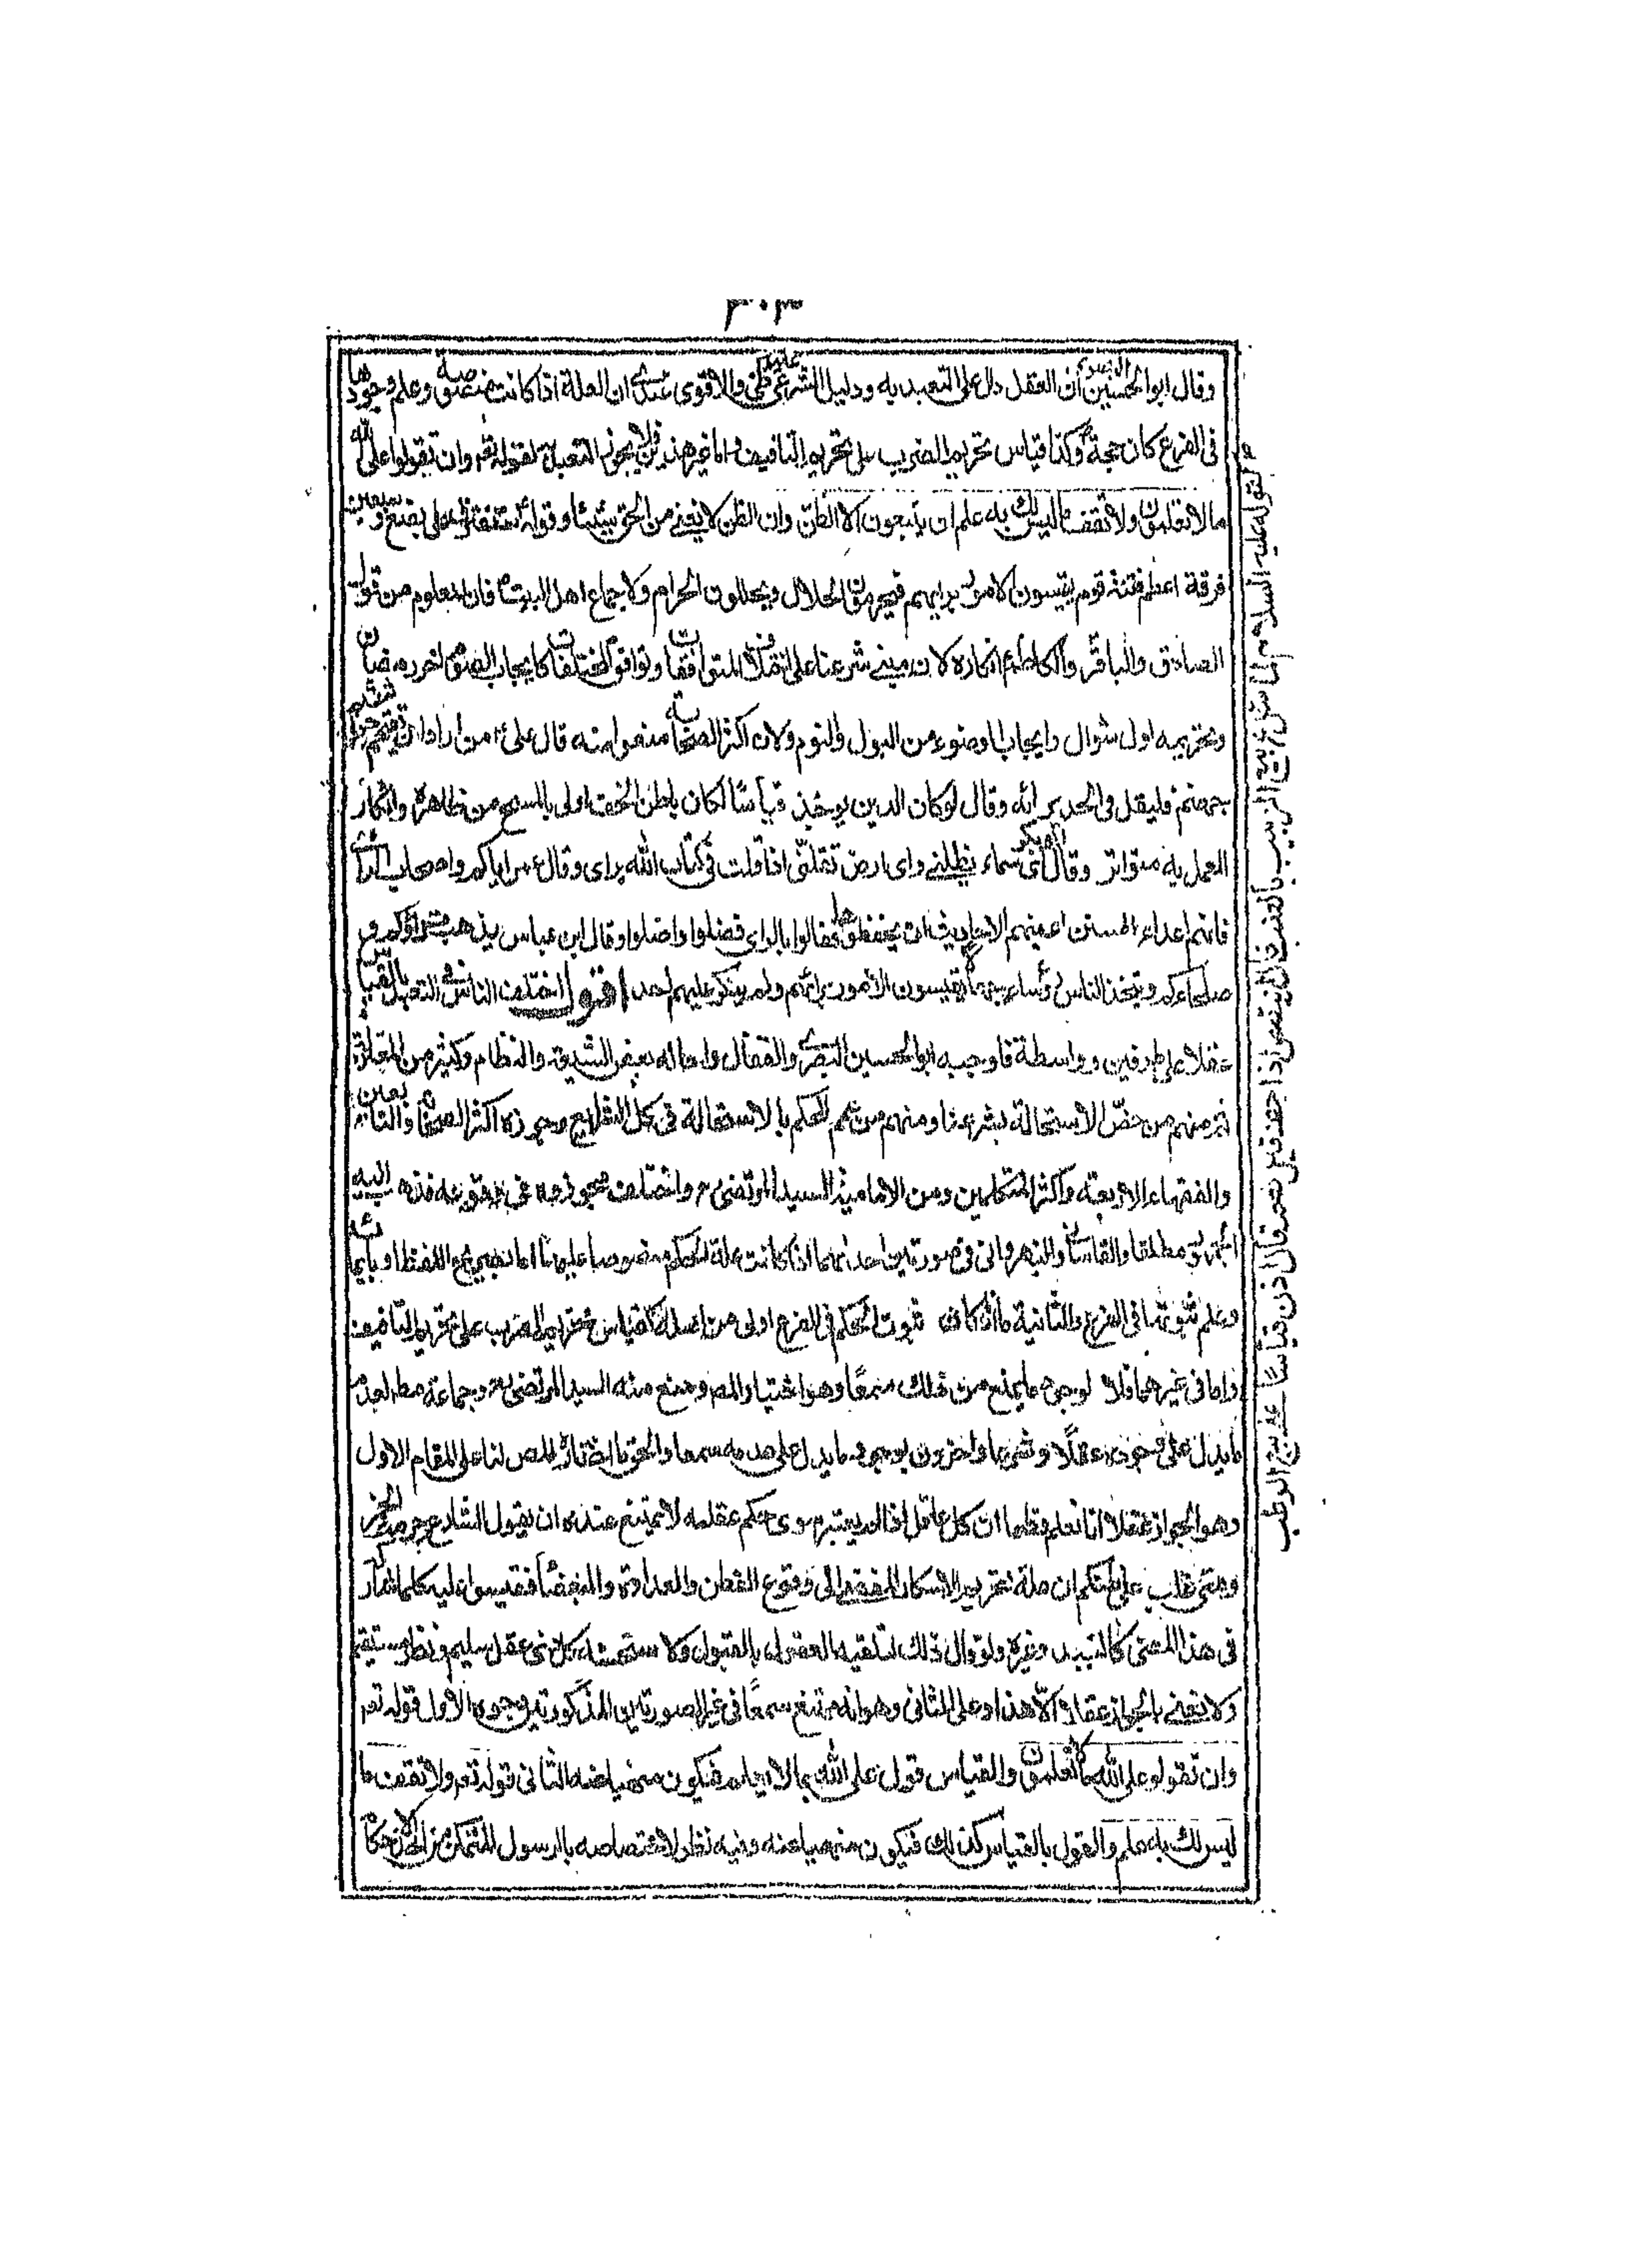 ٣٠٣
وقال ابو الحسين البصرى ان العقل دل على التعبد به ودليل الشرع عليه ظنى والاقوى عندى ان العلة اذا كانت منصوصة وعلم وجودها
فى الفرع كان حجة وكذا قياس تحريم الضرب على تحريم التافيف واما غير هذين فلا يجوز التعبد به لقوله تعم وان تقولوا على الله
ما لا تعلمون ولا تقف ما ليس لك به علم ان يتبعون الا الظن وان الظن لا يغنى من الحق شيئا وقوله ستفترق امتى على بضع وسبعين
فرقة اعظم فتنة قوم يقيسون الامور برايهم فيحرمون الحلال ويحللون الحرام ولاجماع اهل البيت فان المعلوم من قول
الصادق والباقر والكاظم ع انكاره لان مبنى شرعنا على اختلاف المتوافقات وتوافق المختلفات كايجاب الصوم اخر رمضان
وتحريمه اول شوال وايجاب الوضوء من البول والنوم ولان اكثر الصحابة منعوا منه قال على ع من اراد ان يقتحم جراثيم
جهنم فليقل فى الجد برائه وقال لو كان الدين يوخذ قياسا لكان باطن الخف اولى بالمسح من ظاهره وانكار
العمل به متواتر وقال ابو بكر اى سماء تظلنى واى ارض تقلنى اذا قلت فى كتاب الله براى وقال عمر اياكم واصحاب الراى
فانهم اعداء السنن اعيتهم الاحاديث ان يحفظوها فقالوا بالراى فضلوا واضلوا وقال ابن عباس يذهب قراؤكم و
صلحاءكم ويتخذ الناس رؤساء جهالا يقيسون الامور برائهم ولم ينكر عليهم احد اقول اختلف الناس فى التعبد بالقياس
عقلا على طرفين وواسطة فاوجبه ابو الحسين البصرى والقفال واحاله بعض الشيعة والنظام وكثير من المعتزلة
ثم منهم من خص الاستحالة بشرعنا ومنهم من عمم الحكم بالاستحالة فى كل الشرايع وجوزه اكثر الصحابة والتابعين
والفقهاء الاربعة واكثر المتكلمين ومن الامامية السيد المرتضى ره واختلف مجوزوه فى وقوعه فذهب اليه
مطلقا والقاسانى والنهروانى فى صورتين احداهما اذا كانت علة الحكم منصوصا عليها اما بصريح اللفظ او بايمائه
وعلم ثبوتها فى الفرع والثانية ما اذا كان ثبوت الحكم فى الفرع اولى من اصله كقياس تحريم الضرب على تحريم التافيف
واما فى غيرهما فلا لوجود ما يمنع من ذلك سمعا وهو اختيار المص ومنع منه السيد المرتضى ره وجماعة مط لعدم
ما يدل على وجوده عقلا وشرعا واخرون لوجود ما يدل على عدمه سمعا والحق ما اختاره المص لنا على المقام الاول
وهو الجواز عقلا انا نعلم قطعا ان كل عاقل اذا لم يعتبر سوى حكم عقله لا يمتنع عنده ان يقول الشارع حرمت الخمر
ومتى غلب على ظنكم ان علة تحريم الاسكار المفضى الى وقوع الفتن والعداوة والبغضاء فقيسوا عليه كلما شارك
فى هذا المعنى كالنبيذ وغيره ولو قال ذلك لتلقيه العقول بالقبول ولاستحسنه كل ذى عقل سليم ونظر مستقيم
ولا نعنى بالجواز عقلا الا هذا وعلى الثانى وهو انه ممتنع سمعا فى غير الصورتين المذكورتين وجوه الاول قوله تعم
وان تقولوا على الله ما لا تعلمون والقياس قول على الله بما لا يعلم فيكون منهيا عنه الثانى قوله تعم ولا تقف ما
ليس لك به علم والقول بالقياس كذلك فيكون منهيا عنه وفيه نظر لاختصاصه بالرسول المتمكن من اخذ الاحكام
لقوله عليه السلام لما سئل عن بيع الرطب فقال اينقص اذا جف قيل نعم فقال فلا اذن